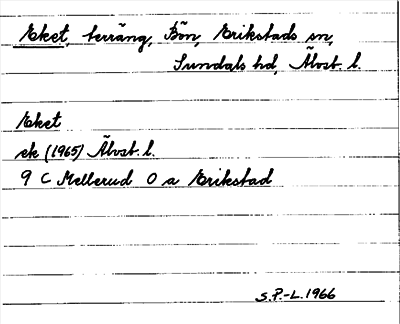 Eket, terräng, Bön, Erikstads sn,
Sundals hd, Älvsb. l.
Eket
ek (1965) Älvsb. l.
9 C Mellerud O a Erikstad
S.P.-L. 1966